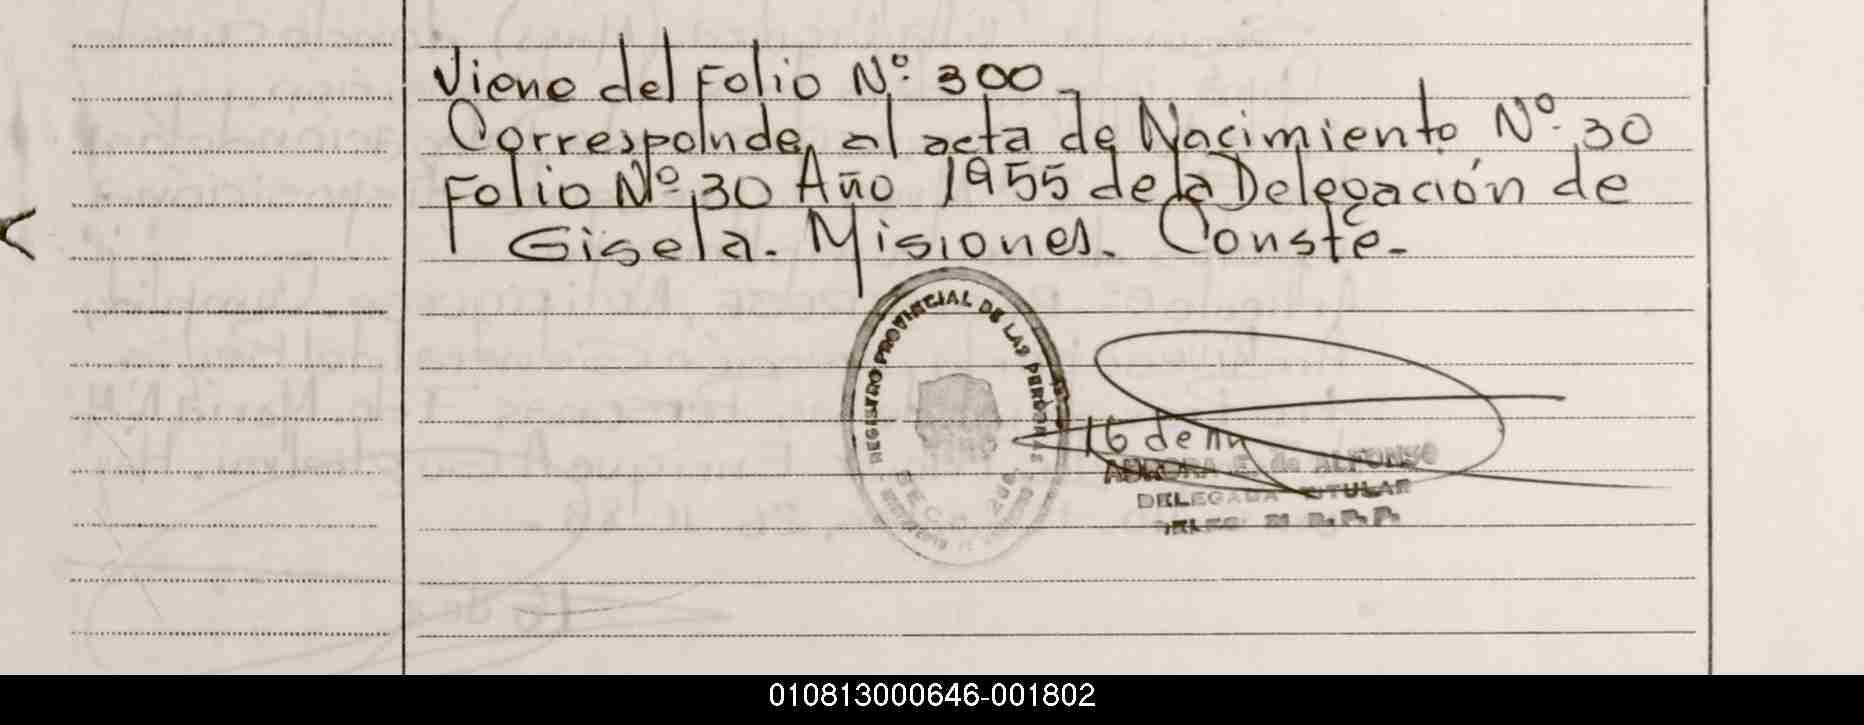 Viene del Folio Nº 300.
Corresponde, al acta de Nacimiento Nº 30
Folio Nº 30 Año 1955 de la Delegación de
Gisela. Misiones. Conste.
REGISTRO PROVINCIAL DE LAS PERSONAS
16 de
AURORA E. de ALFONSO
DELEGADA TITULAR
R. P. P.
010813000646-001802